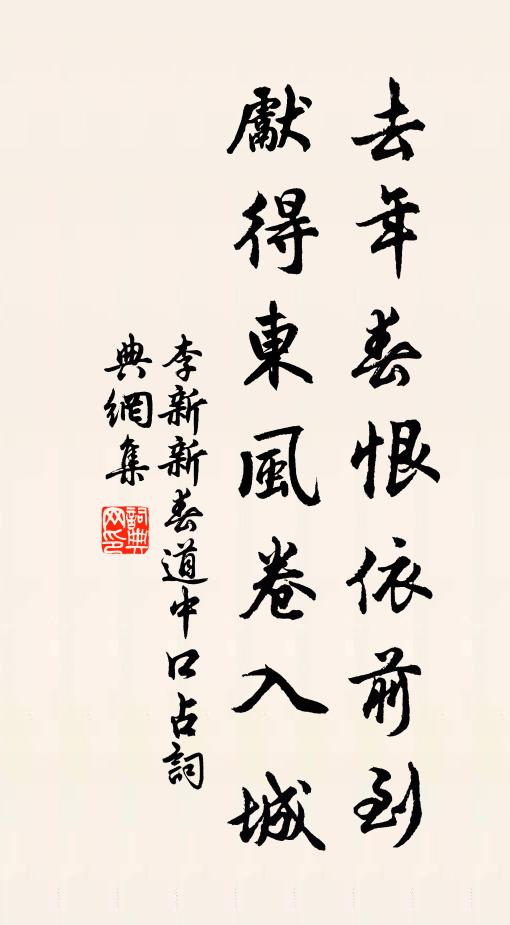 去年春恨依前到
獻得東風卷入城
李新新春道中口占詞
典網集
詞典網印